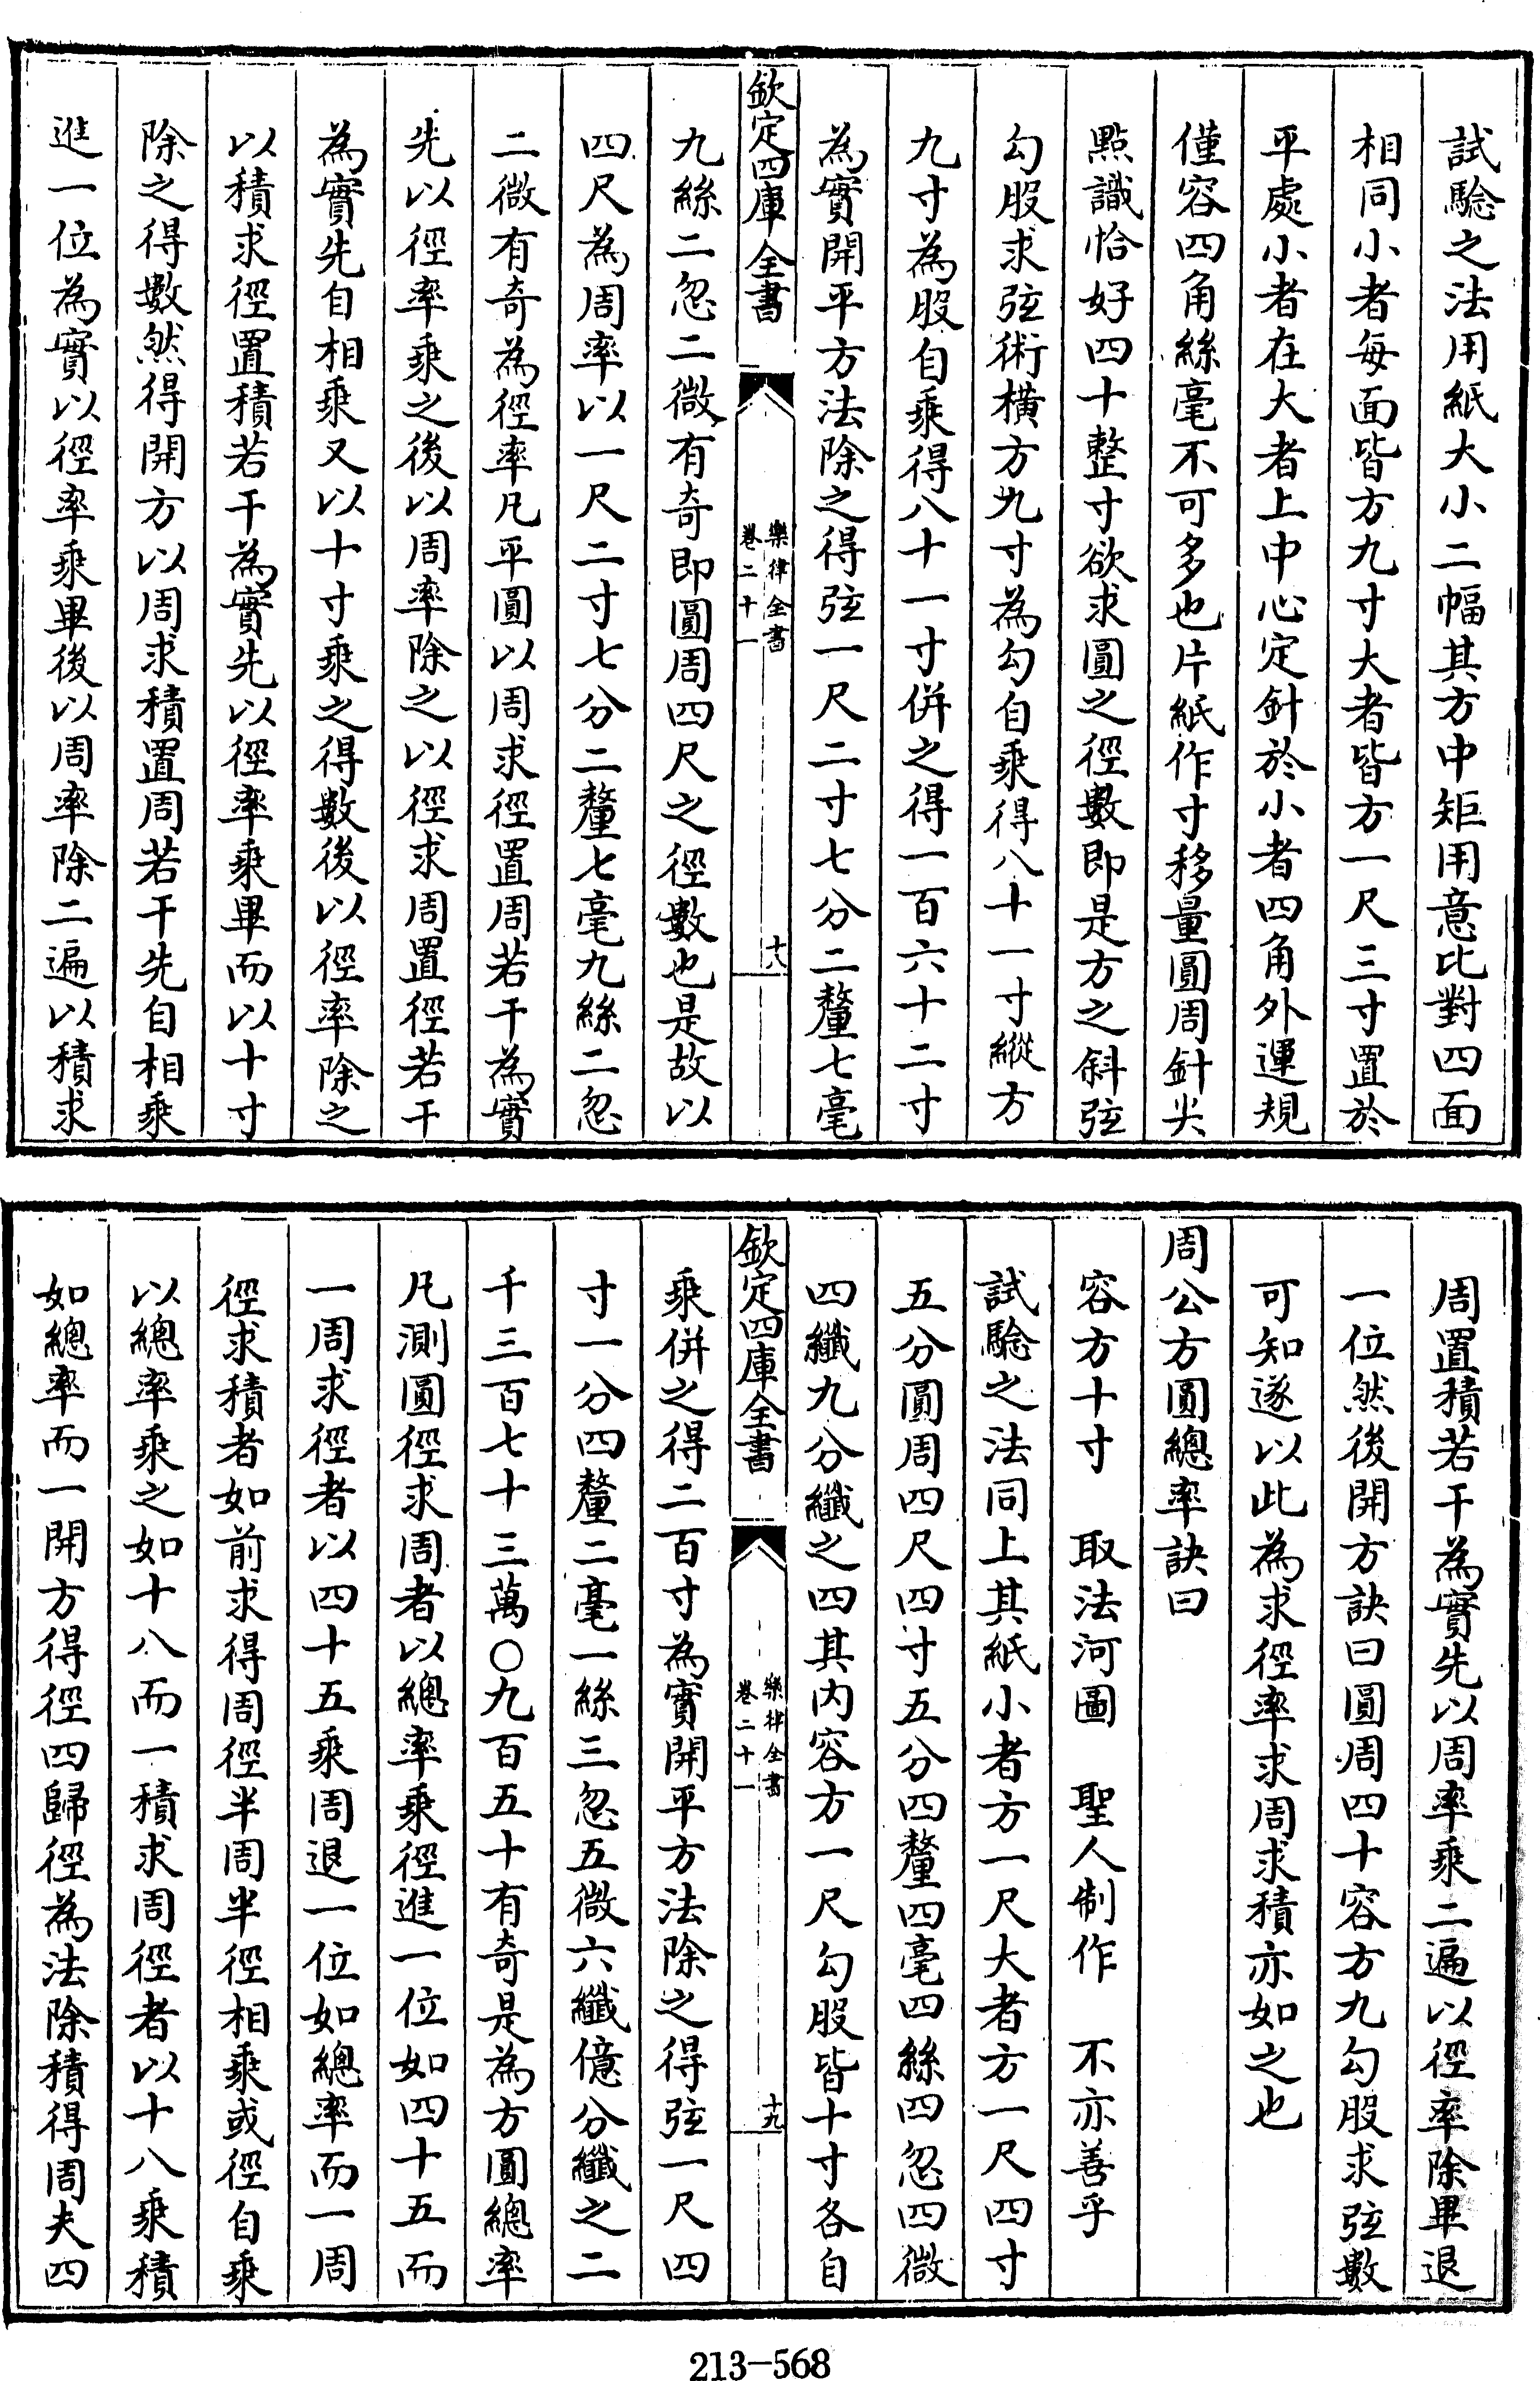 試驗之法用紙大小二幅其方中矩用意比對四面
相同小者每面皆方九寸大者皆方一尺三寸置於
平處小者在大者上中心定針於小者四角外運規
僅容四角絲毫不可多也片紙作寸移量圓周針尖
點識恰好四十整寸欲求圓之徑數即是方之斜弦
勾股求弦術橫方九寸為勾自乘得八十一寸縱方
九寸為股自乘得八十一寸併之得一百六十二寸
為實開平方法除之得弦一尺二寸七分二釐七毫
欽定四庫全書
樂律全書
卷二十一
十八
九絲二忽二微有奇即圓周四尺之徑數也是故以
四尺為周率以一尺二寸七分二釐七毫九絲二忽
二微有奇為徑率凡平圓以周求徑置周若干為實
先以徑率乘之後以周率除之以徑求周置徑若干
為實先自相乘又以十寸乘之得數後以徑率除之
以積求徑置積若干為實先以徑率乘畢而以十寸
除之得數然得開方以周求積置周若干先自相乘
進一位為實以徑率乘畢後以周率除二遍以積求
周置積若干為實先以周率乘二遍以徑率除畢退
一位然後開方訣曰圓周四十容方九勾股求弦數
可知遂以此為求徑率求周求積亦如之也
周公方圓總率訣曰
容方十寸　取法河圖　聖人制作　不亦善乎
試驗之法同上其紙小者方一尺大者方一尺四寸
五分圓周四尺四寸五分四釐四毫四絲四忽四微
四纖九分纖之四其內容方一尺勾股皆十寸各自
欽定四庫全書
樂律全書
卷二十一
十九
乘併之得二百寸為實開平方法除之得弦一尺四
寸一分四釐二毫一絲三忽五微六纖億分纖之二
千三百七十三萬〇九百五十有奇是為方圓總率
凡測圓徑求周者以總率乘徑進一位如四十五而
一周求徑者以四十五乘周退一位如總率而一周
徑求積者如前求得周徑半周半徑相乘或徑自乘
以總率乘之如十八而一積求周徑者以十八乘積
如總率而一開方得徑四歸徑為法除積得周夫四
213-568